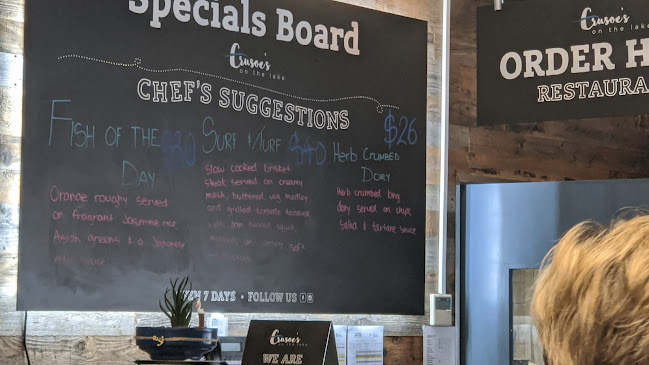 Specials Board
Crusoe's
on the lake
CHEF'S SUGGESTIONS
FISH OF THE DAY
Orange roughy served
on fragrant Jasmine rice
Asian greens & a Japanese
sauce
SURF & TURF $40
Slow cooked brisket
steak served on creamy
mash, buttered veg medley
and grilled tomato
squid,
Herb Crumbed
Dory
$26
Herb crumbed king
dory served on chips,
salad & tartare sauce
7 DAYS • FOLLOW US
Crusoe's
on the lake
ORDER H
RESTAURA
Crusoe's
on the lake
WE ARE